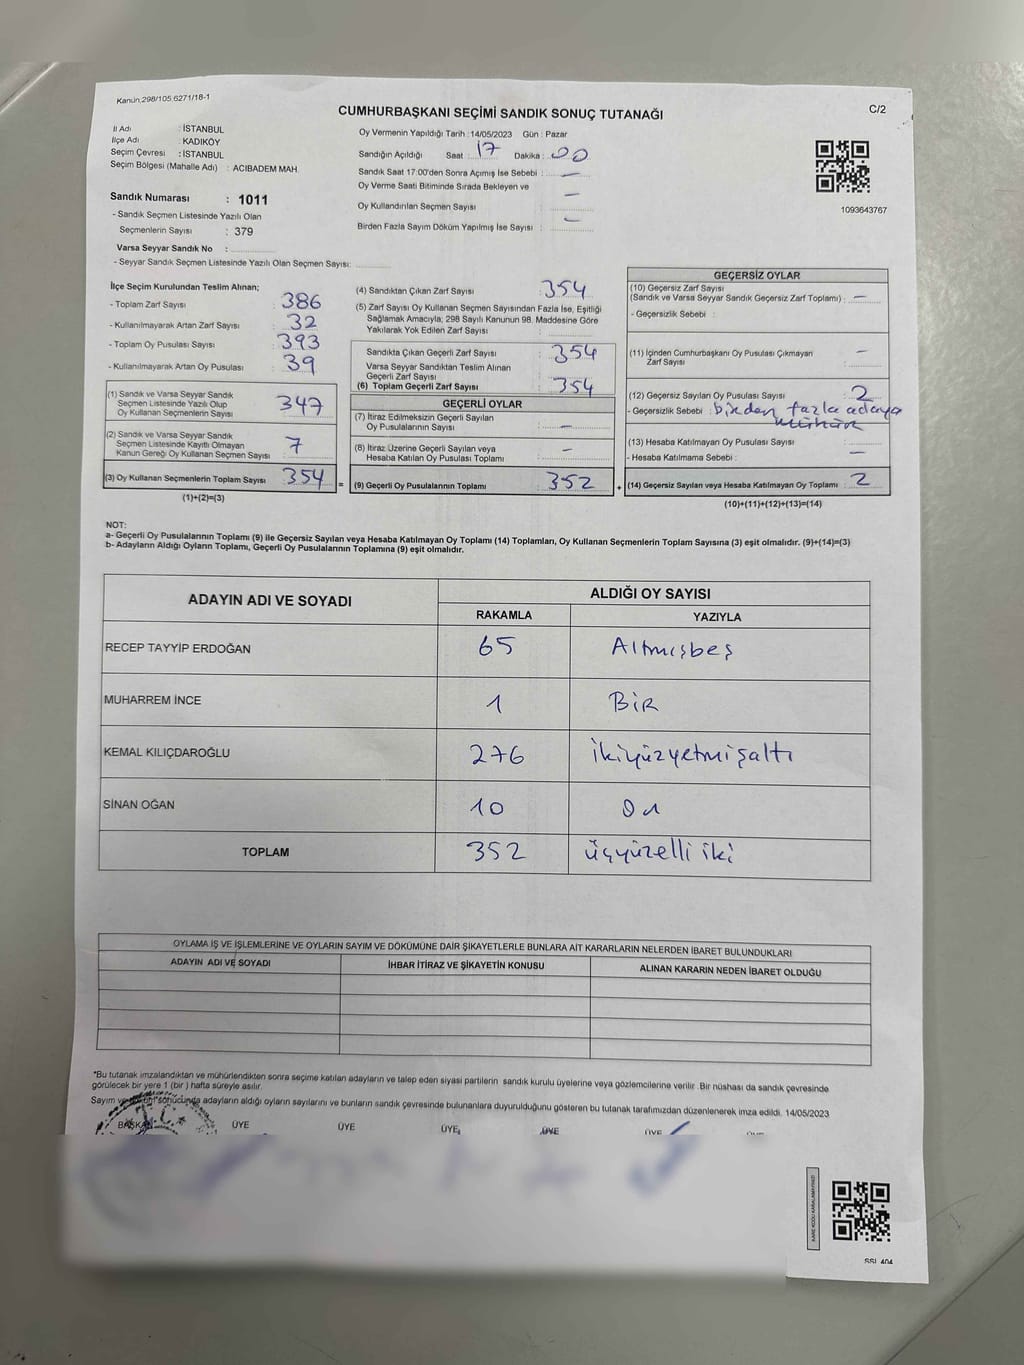 Kanun:298/105 6271/18-1
C/2
CUMHURBAŞKANI SEÇİMİ SANDIK SONUÇ TUTANAĞI
İl Adı : İSTANBUL
İlçe Adı : KADIKÖY
Seçim Çevresi : İSTANBUL
Seçim Bölgesi (Mahalle Adı) : ACIBADEM MAH.
Sandık Numarası : 1011
- Sandık Seçmen Listesinde Yazılı Olan
Seçmenlerin Sayısı : 379
Varsa Seyyar Sandık No :
- Seyyar Sandık Seçmen Listesinde Yazılı Olan Seçmen Sayısı:
Oy Vermenin Yapıldığı Tarih :14/05/2023 Gün : Pazar
Sandığın Açıldığı Saat : 17 Dakika : 00
Sandık Saat 17:00'den Sonra Açımış İse Sebebi : —
Oy Verme Saati Bitiminde Sırada Bekleyen ve
Oy Kullandırılan Seçmen Sayısı : —
Birden Fazla Sayım Döküm Yapılmış İse Sayısı : —
1093643767
İlçe Seçim Kurulundan Teslim Alınan;
- Toplam Zarf Sayısı : 386
- Kullanılmayarak Artan Zarf Sayısı : 32
- Toplam Oy Pusulası Sayısı : 393
- Kullanılmayarak Artan Oy Pusulası : 39
(1) Sandık ve Varsa Seyyar Sandık
Seçmen Listesinde Yazılı Olup
Oy Kullanan Seçmenlerin Sayısı : 347
(2) Sandık ve Varsa Seyyar Sandık
Seçmen Listesinde Kayıtlı Olmayan
Kanun Gereği Oy Kullanan Seçmen Sayısı : 7
(3) Oy Kullanan Seçmenlerin Toplam Sayısı : 354
(1)+(2)=(3)
=
(4) Sandıktan Çıkan Zarf Sayısı : 354
(5) Zarf Sayısı Oy Kullanan Seçmen Sayısından Fazla İse, Eşitliği
Sağlamak Amacıyla; 298 Sayılı Kanunun 98. Maddesine Göre
Yakılarak Yok Edilen Zarf Sayısı :
Sandıkta Çıkan Geçerli Zarf Sayısı : 354
Varsa Seyyar Sandıktan Teslim Alınan
Geçerli Zarf Sayısı :
(6) Toplam Geçerli Zarf Sayısı : 354
GEÇERLİ OYLAR
(7) İtiraz Edilmeksizin Geçerli Sayılan
Oy Pusulalarının Sayısı : —
(8) İtiraz Üzerine Geçerli Sayılan veya
Hesaba Katılan Oy Pusulası Toplamı : —
(9) Geçerli Oy Pusulalarının Toplamı : 352
+
GEÇERSİZ OYLAR
(10) Geçersiz Zarf Sayısı
(Sandık ve Varsa Seyyar Sandık Geçersiz Zarf Toplamı) : —
- Geçersizlik Sebebi :
(11) İçinden Cumhurbaşkanı Oy Pusulası Çıkmayan : —
Zarf Sayısı
(12) Geçersiz Sayılan Oy Pusulası Sayısı : 2
- Geçersizlik Sebebi : birden fazla adaya
mühür
(13) Hesaba Katılmayan Oy Pusulası Sayısı :
- Hesaba Katılmama Sebebi : —
(14) Geçersiz Sayılan veya Hesaba Katılmayan Oy Toplamı : 2
(10)+(11)+(12)+(13)=(14)
NOT:
a- Geçerli Oy Pusulalarının Toplamı (9) ile Geçersiz Sayılan veya Hesaba Katılmayan Oy Toplamı (14) Toplamları, Oy Kullanan Seçmenlerin Toplam Sayısına (3) eşit olmalıdır. (9)+(14)=(3)
b- Adayların Aldığı Oyların Toplamı, Geçerli Oy Pusulalarının Toplamına (9) eşit olmalıdır.
ADAYIN ADI VE SOYADI
ALDIĞI OY SAYISI
RAKAMLA YAZIYLA
RECEP TAYYİP ERDOĞAN 65 Altmışbeş
MUHARREM İNCE 1 BiR
KEMAL KILIÇDAROĞLU 276 ikiyüzyetmişaltı
SİNAN OĞAN 10 On
TOPLAM 352 üçyüzelli iki
OYLAMA İŞ VE İŞLEMLERİNE VE OYLARIN SAYIM VE DÖKÜMÜNE DAİR ŞİKAYETLERLE BUNLARA AİT KARARLARIN NELERDEN İBARET BULUNDUKLARI
ADAYIN ADI VE SOYADI İHBAR İTİRAZ VE ŞİKAYETİN KONUSU ALINAN KARARIN NEDEN İBARET OLDUĞU
*Bu tutanak imzalandıktan ve mühürlendikten sonra seçime katılan adayların ve talep eden siyasi partilerin sandık kurulu üyelerine veya gözlemcilerine verilir. Bir nüshası da sandık çevresinde
görülecek bir yere 1 (bir) hafta süreyle asılır.
Sayım ve sonucunda adayların aldığı oyların sayılarını ve bunların sandık çevresinde bulunanlara duyurulduğunu gösteren bu tutanak tarafımızdan düzenlenerek imza edildi. 14/05/2023
BAŞKAN ÜYE ÜYE ÜYE ÜYE ÜYE
T.C.